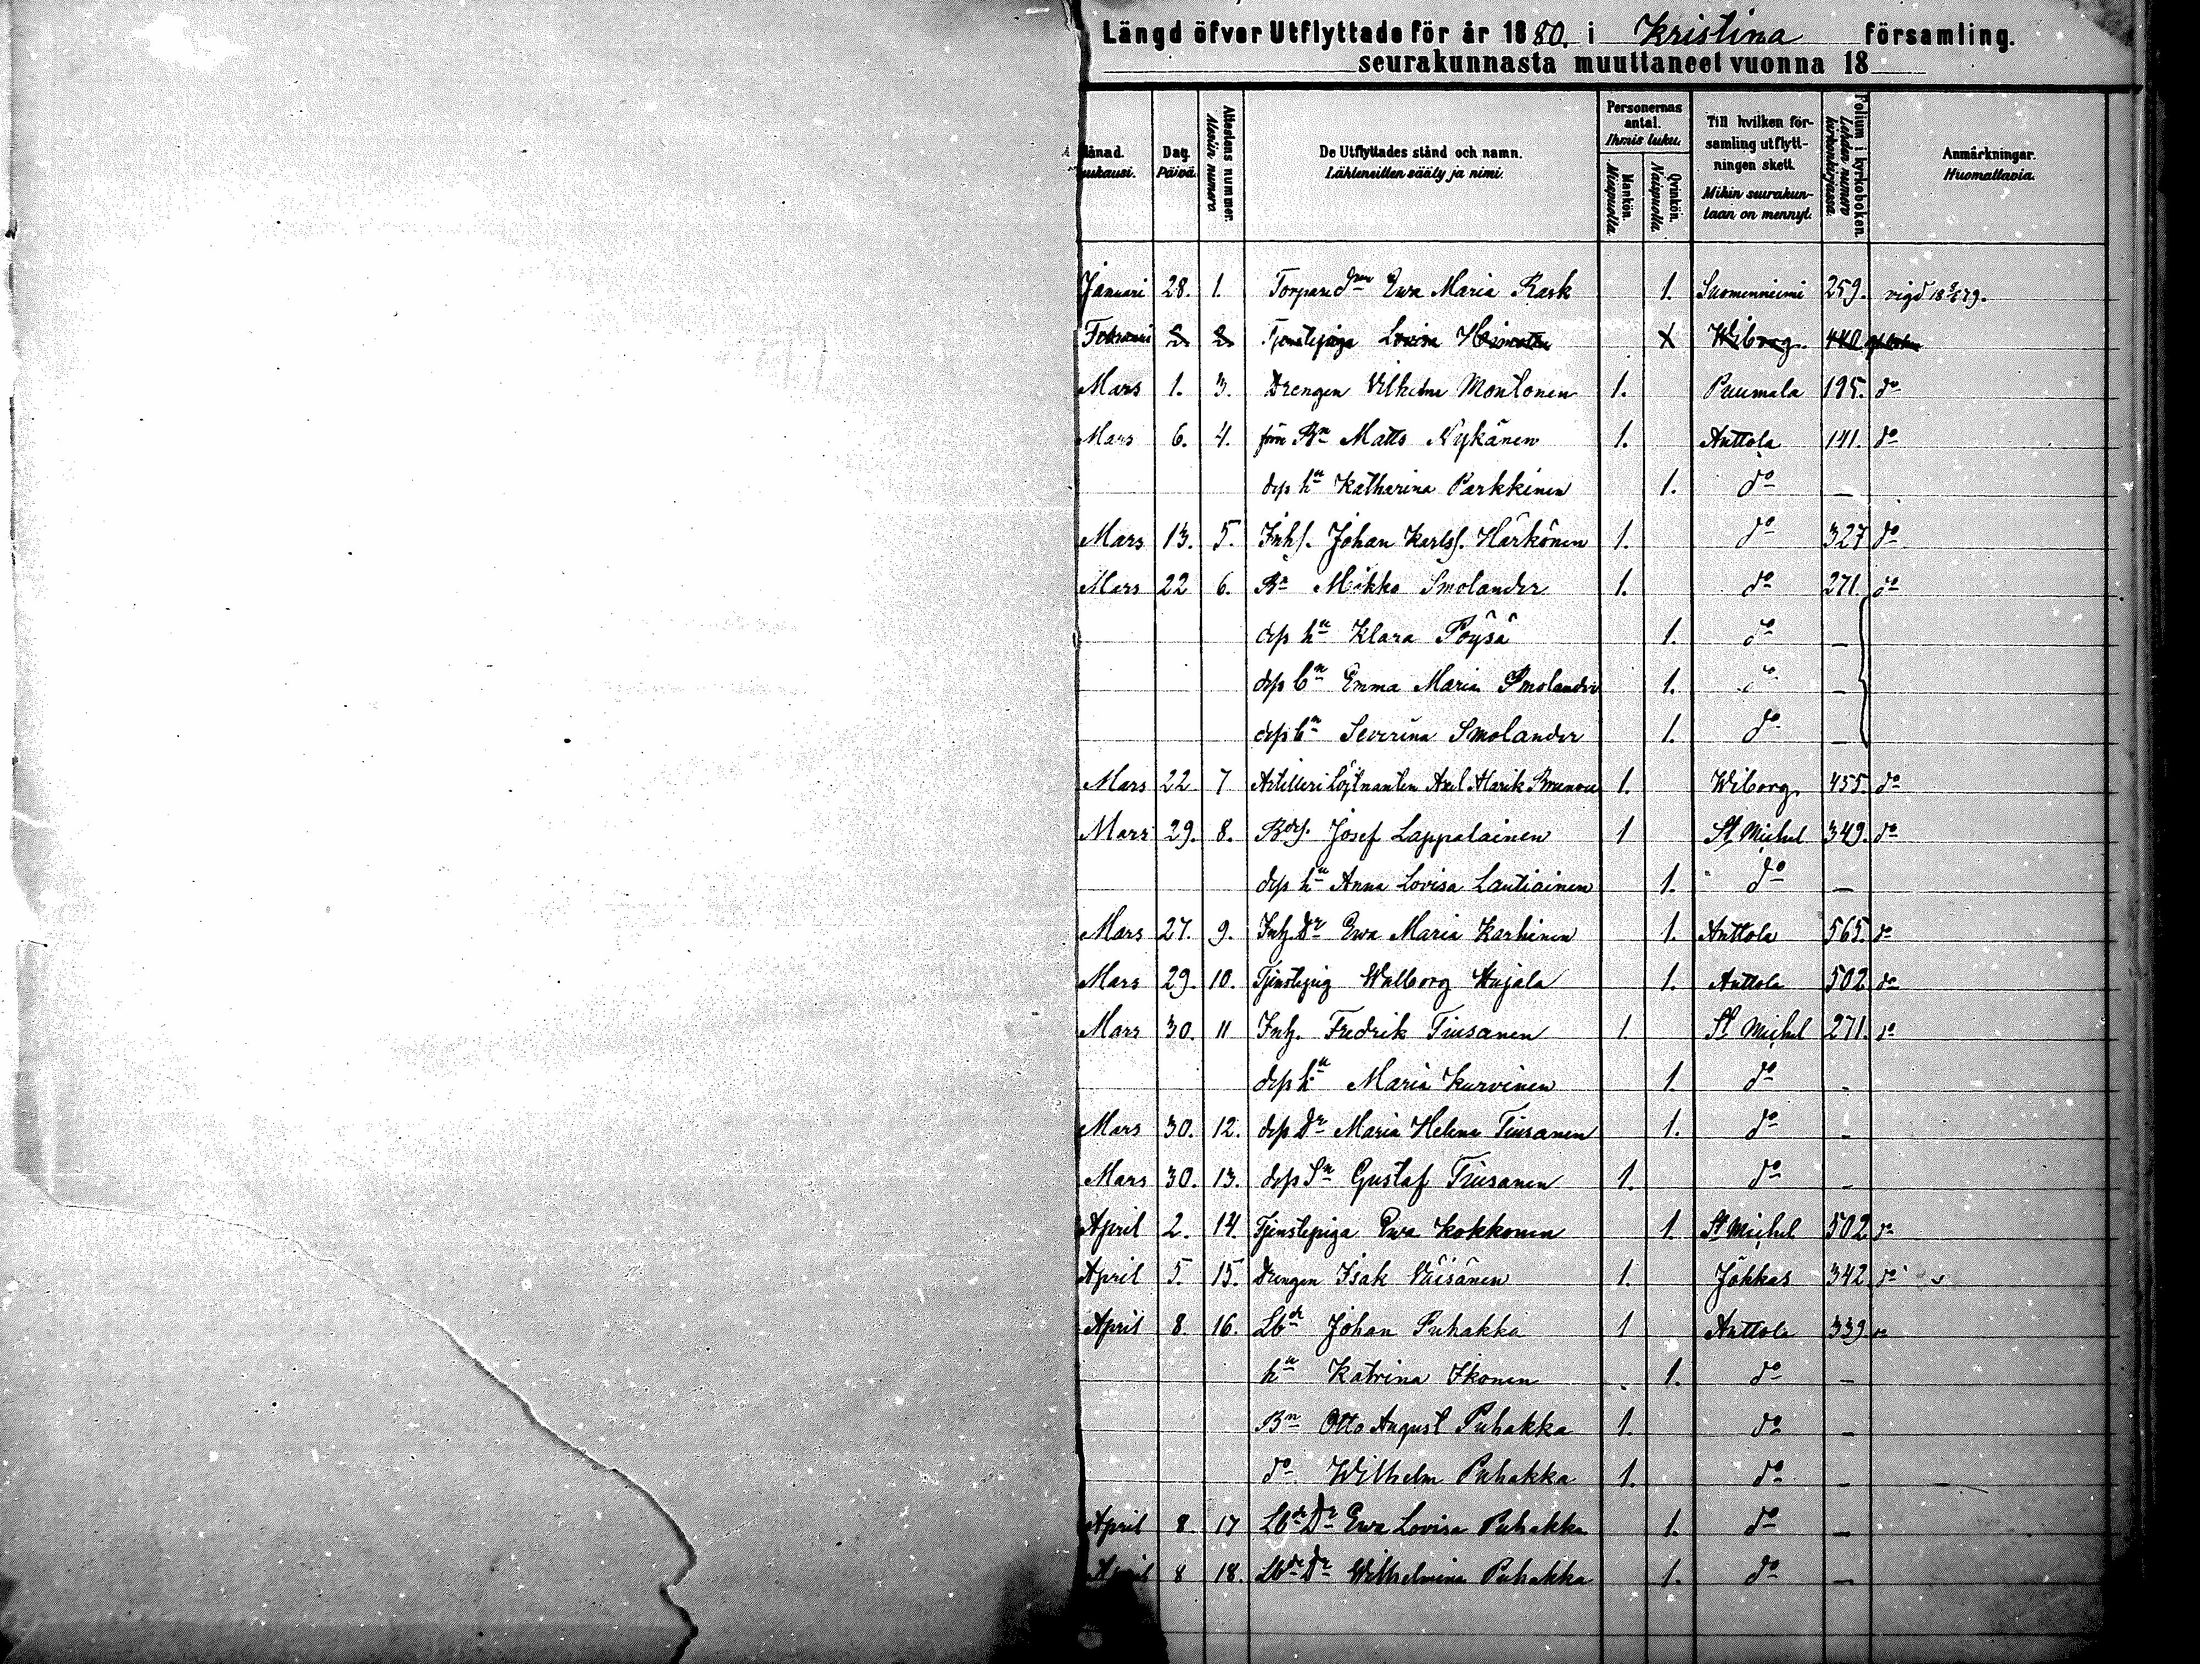 Längd öfver Utflyttade för år 1880. i Kristina församling.
seurakunnasta muuttaneet vuonna 18
Månad. Kuukausi. Dag. Päivä. Attestens nummer. Alestin numero. De Utflyttades stånd och namn. Lähteneitten sääty ja nimi. Personernas antal. Ihmis luku. Mankön. Miespuolia. Qvinkön. Naispuolia. Till hvilken församling utflyttningen skett. Mihin seurakuntaan on mennyt. Folium i kyrkoboken. Lehden numero kirkonkirjassa. Anmärkningar. Huomattavia.
Januari 28. 1. Torpare dr Ewa Maria Rask 1. Suomenniemi 259. vigd
Februari 2. 2. Tjenstepiga Lovisa X Wiborg 440
Mars 1. 3. Drengen Vilhelm Montonen 1. Puumala 195. do
Mars 6. 4. Bn Matts Nykänen 1. Anttola 141. do
dess hu Katharina Parkkinen 1. do —
Mars 13. 5. Inhs. Johan Karlss. Härkönen 1. do 327 do
Mars 22 6. Bn Mikko Smolander 1. do 271. do
dess hu Klara Pöysä 1. do —
dess bn Emma Maria Smolander 1. do —
dess bn Severina Smolander 1. do —
Mars 22 7 Artilleri Löjtnanten Axel Alarik Brunou 1. Wiborg 455. do
Mars 29. 8. Josef Lappalainen 1 St Michel 349. do
dess hu Anna Lovisa Lautiainen 1. do —
Mars 27. 9. Inh. Dr Ewa Maria Karhinen 1. Anttola 565. do
Mars 29. 10. Tjenstepig Walborg Hujala 1. Anttola 502 do
Mars 30. 11 Inh. Fredrik Tiusanen 1. St Michel 271. do
dess hu Maria Kurvinen 1. do -
Mars 30. 12. dess Dr Maria Helena Tiusanen 1. do -
Mars 30. 13. dess Sn Gustaf Tiusanen 1. do -
April 2. 14. Tjenstepiga Ewa Kokkonen 1. St Michel 502 do
April 5. 15. Drengen Isak Väisänen 1. Jokkas 342 do
April 8. 16. Lbde Johan Puhakka 1 Anttola 339 do
hu Katrina Ikonen 1. do —
Bn Otto August Puhakka 1. do —
do Wilhelm Puhakka 1. do -
April 8. 17 Lbde Dr Ewa Lovisa Puhakka 1. do —
April 8 18. Lbde Dr Wilhelmina Puhakka 1. do —